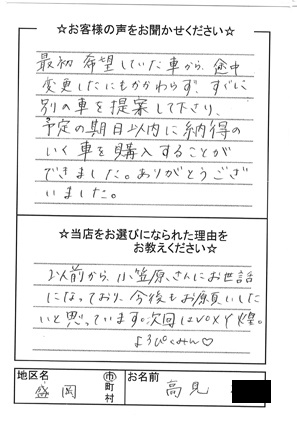 ☆お客様の声をお聞かせください☆
最初 希望していた車から、途中
変更したにもかかわらず、すぐに
別の車を提案して下さり、
予定の期日以内に納得の
いく車を購入することが
できました。ありがとうござ
いました。
☆当店をお選びになられた理由を
お教えください☆
以前から、小笠原さんにお世話
になっており、今後もお願いした
いと思っています。次回は
よろぴくみん♡
地区名
盛岡
市
町
村
お名前
高見